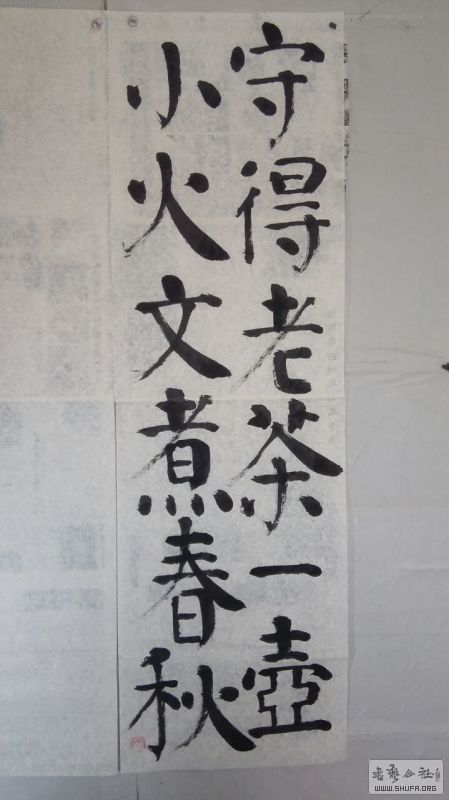 守得老茶一壺
小火文煮春秋
书艺公社
WWW.SHUFA.ORG